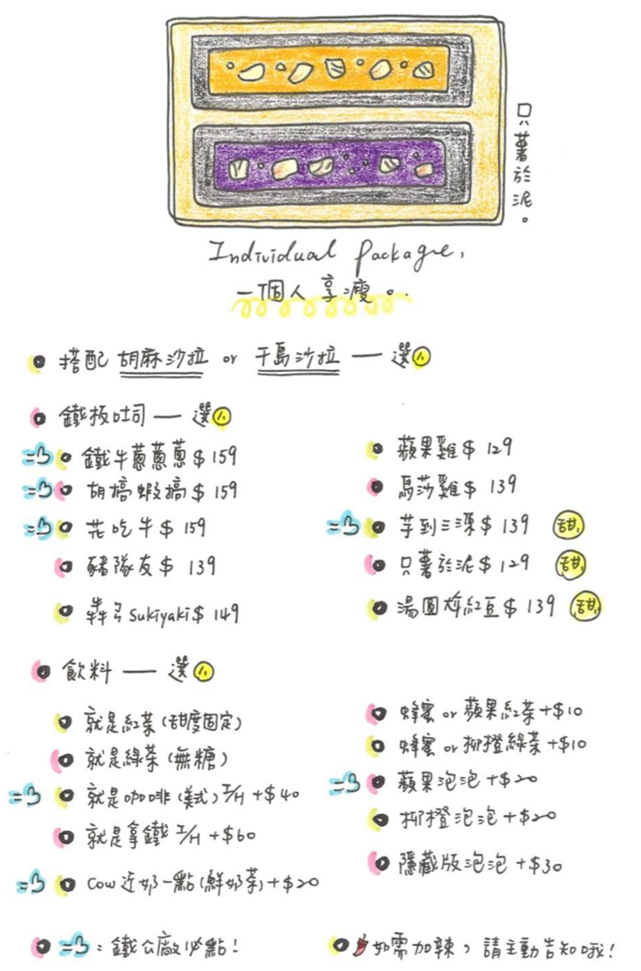 只薯於泥。
Individual Package,
一個人享瘦。
搭配 胡麻沙拉 or 千島沙拉 — 選1
鐵板吐司 — 選1
鐵牛蔥蔥蔥 $ 159
胡搞蝦搞 $ 159
花吃牛 $ 159
豬隊友 $ 139
犇ㄢ sukiyaki $ 149
蘋果雞 $ 129
馬莎雞 $ 139
芋到三深 $ 139 甜
只薯於泥 $ 129 甜
湯圓炸紅豆 $ 139 甜
飲料 — 選1
就是紅茶(甜度固定)
就是綠茶(無糖)
就是咖啡(美式) I/H +$40
就是拿鐵 I/H +$60
Cow 近奶一點(鮮奶茶)+$20
蜂蜜 or 蘋果紅茶 +$10
蜂蜜 or 柳橙綠茶 +$10
蘋果泡泡 +$20
柳橙泡泡 +$20
隱藏版泡泡 +$30
：鐵公廠必點！
如需加辣，請主動告知哦！